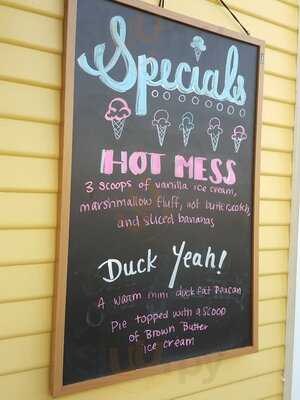 Specials
HOT MESS
3 scoops of vanilla ice cream,
marshmallow fluff, hot butterscotch,
and sliced bananas
Duck Yeah!
A warm mini duck fat Pecan
Pie topped with a scoop
of Brown Butter
ice cream